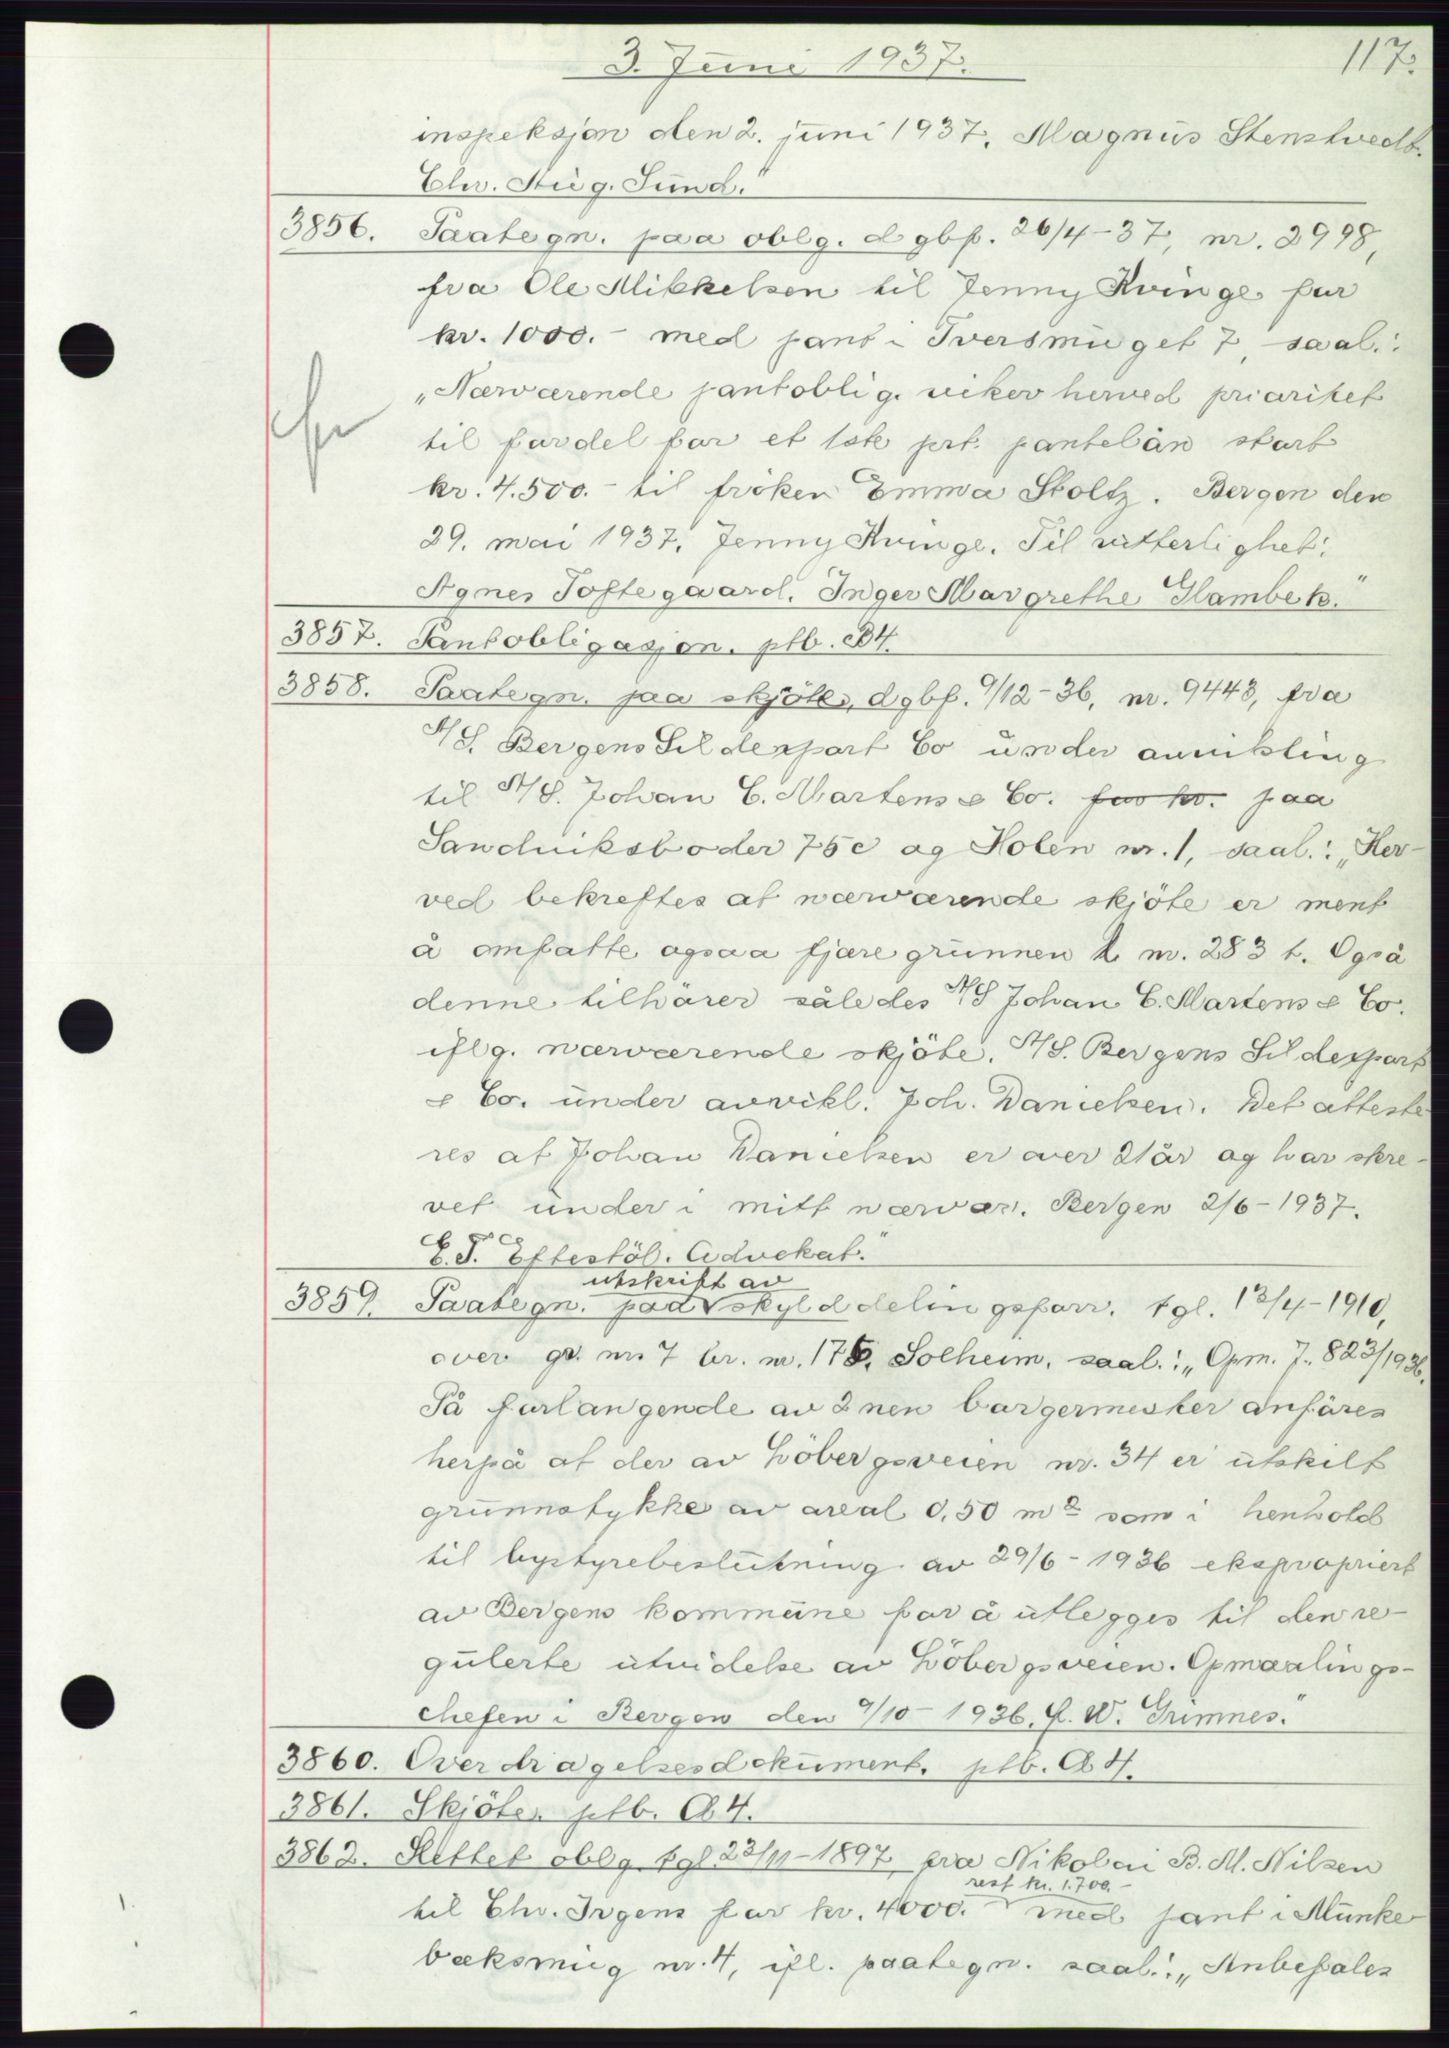 3. Juni 1937.
117.
inspeksjon den 2. juni 1937. Magnus Stenstvedt.
Chr. Stug. Sund."
3856. Paategn. paa oblg. dgbf. 26/4-37, nr. 2998,
fra Ole Mikkelsen til Jenny Kvinge for
kr. 1000.- med pant i Tversmuget 7, saal.:
„Nærværende pantoblig. viker herved prioritet
til fordel for et 1ste prt. pantelån stort
kr. 4.500.- til fröken Emma Stoltz. Bergen den
29. mai 1937. Jenny Kvinge. Til vitterlighet:
Agnes Toftegaard. Inger Margrethe Glambek."
3857. Pantobligasjon. ptb. B4.
3858. Paategn. paa skjöte, dgbf. 9/12-36, nr. 9443, fra
A/S. Bergens Sildexport Co under avvikling
til A/S. Johan C. Martens & Co. for kr. paa
Sandviksboder 75c og Holen nr. 1, saal.: „Her-
ved bekreftes at nærværende skjöte er ment
å omfatte ogsaa fjæregrunnen nr. 283 t. Også
denne tilhører således A/S Johan C. Martens & Co.
iflg. nærværende skjöte. A/S. Bergens Sildexport
& Co. under avvikl. Joh. Danielsen. Det atteste-
res at Johan Danielsen er over 21 år og har skre-
vet under i mitt nærvær. Bergen 2/6-1937.
E.T. Eftestöl. Advokat."
utskrift av
3859. Paategn. paa skylddelingsforr. tgl. 13/4-1910,
over gr. nr. 7 br. nr. 176. Solheim. saal.: „Opm. J. 823/1936.
På forlangende av 2nen borgermester anføres
herpå at der av Löbergsveien nr. 34 er utskilt
grunnstykke av areal 0,50 m² som i henhold
til bystyrebeslutning av 29/6-1936 ekspropriert
av Bergens kommune for å utlegges til den re-
gulerte utvidelse av Löbergsveien. Opmaalings-
chefen i Bergen den 9/10-1936. W. Grimnes."
3860. Overdragelsesdokument. ptb. A4.
3861. Skjöte. ptb. A4.
3862. Slettet oblg. tgl 23/11-1897, fra Nikolai B. M. Nilsen
rest kr. 1.700.-
til Chr. Irgens for kr. 4000. med pant i Munke
bæksmug nr. 4, ifl. paategn. saal.: „Anbefales